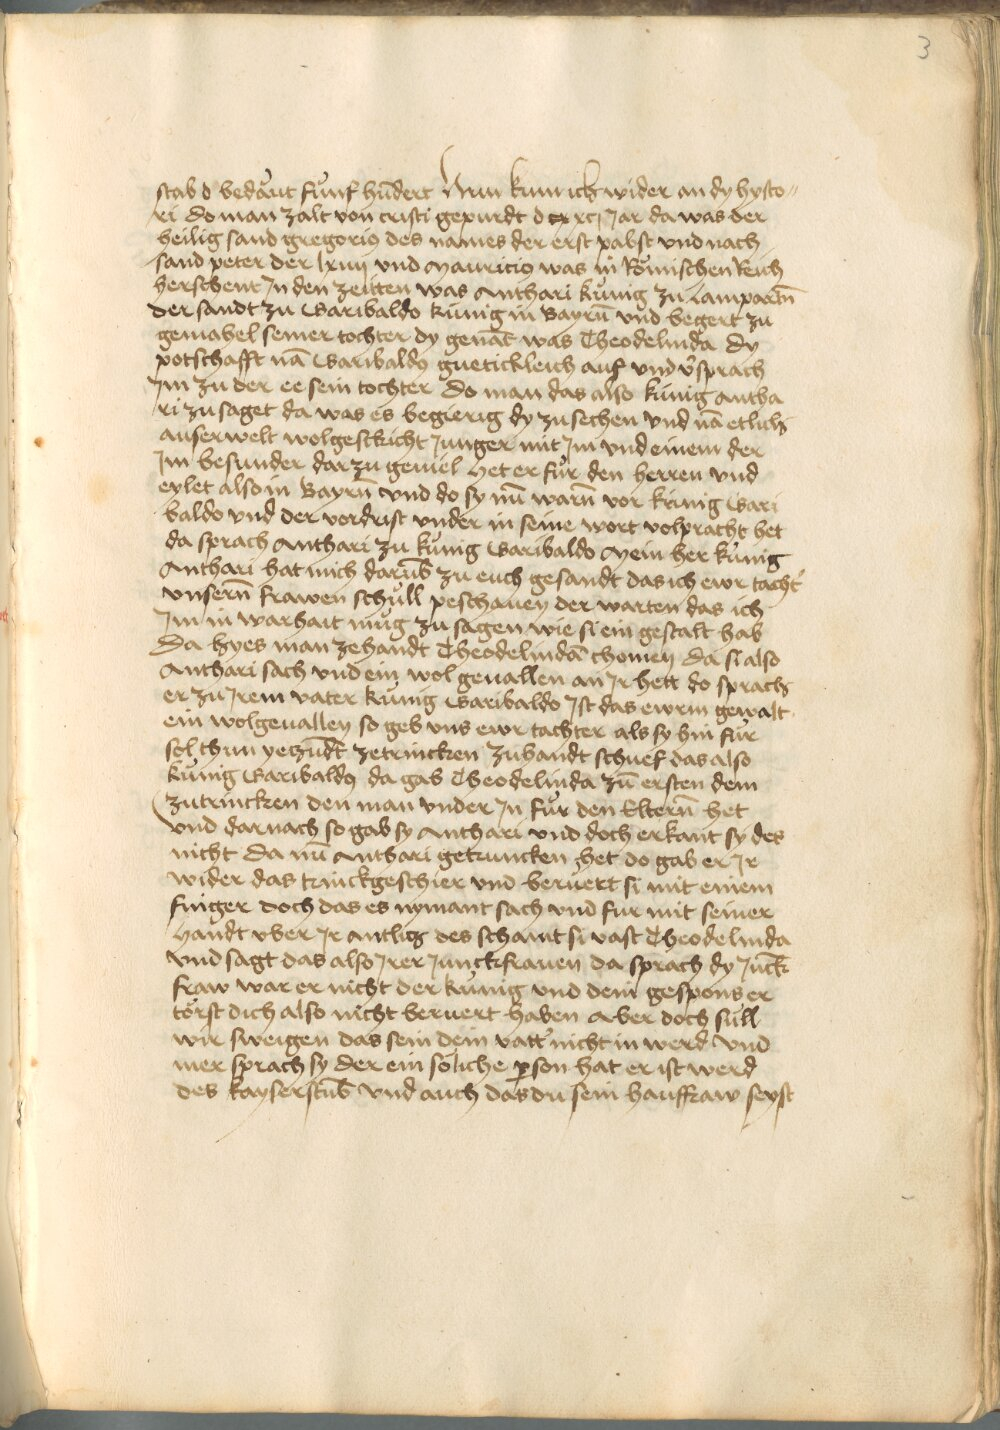 3
stab d bedäut fünf hūdert Nun kum ich wider an dy hysto⸗
ri do man zalt von cristi gepurdt d xcj Jar da was der
heilig sand gregoriꝰ des names der erst pabst vnd nach
sand peter der lxiiij vnd Mauriciꝰ was in Römischen Reich
herschent In den zeitten was Anthari künig zu Lamparttn̄
der sandt zu Garibaldo künig in Bayrn̄ vnd begert zu
gemahel seiner tochter dy genāt was Theodelinda Dy
potschafft nā Garibaldꝰ guetickleich auf vnd v̓sprach
Im zu der ee sein tochter Do man das also künig Antha
ri zusaget da was es begierig dy zu sechen vnd nā etlich
auserwelt wolgeschickt Junger mit Im vnd einem der
Im besunder darzu geuiel het er für den herren vnd
eylet also in Bayrn̄ vnd do sy nū warn̄ vor künig Gari
baldo vnd der vordrist vnder in seine wort volpracht het
da sprach Anthari zu künig Garibaldo Mein her künig
Anthari hat mich darūb zu euch gesandt das ich ewr tacht̓
vnsern̄ frawen schüll peschauen der warten das ich
Im in warhait müg zu sagen wie si ein gestalt hab
Da hyes man zehandt Theodelindā chomen Da si also
Anthari sach vnd ein wolgeuallen an Jr hett do sprach
er zu Jrem vater künig Garibaldo Ist das ewrm gewalt
ein wolgeuallen so geb vns ewr tachter als sy hin für
sol thun yeczūdt zetrincken Zuhandt schuef das also
künig Garibaldꝰ da gab Theodelinda zū ersten dem
zutrincken den man vnder In für den Eltern̄ het
vnd darnach so gab sy Anthari vnd doch erkant sy des
nicht Da nū Anthari getruncken het do gab er Jr
wider das trinckgeschier vnd beruert si mit einem
finger doch das es nymant sach vnd fur mit seiner
handt vber Jr antlicz des schamt si vast Theodelinda
vnd sagt das also Jrer Junckfrauen da sprach dy Jūck
fraw war er nicht der künig vnd dein gespons er
törst dich also nicht beruert haben Aber doch süll
wir sweigen das sein dein vatt̓ nicht in werd Vnd
mer sprach sy der ein söliche ꝑson hat er ist werd
des kayserstūb vnd auch das du sein hausfraw seyst